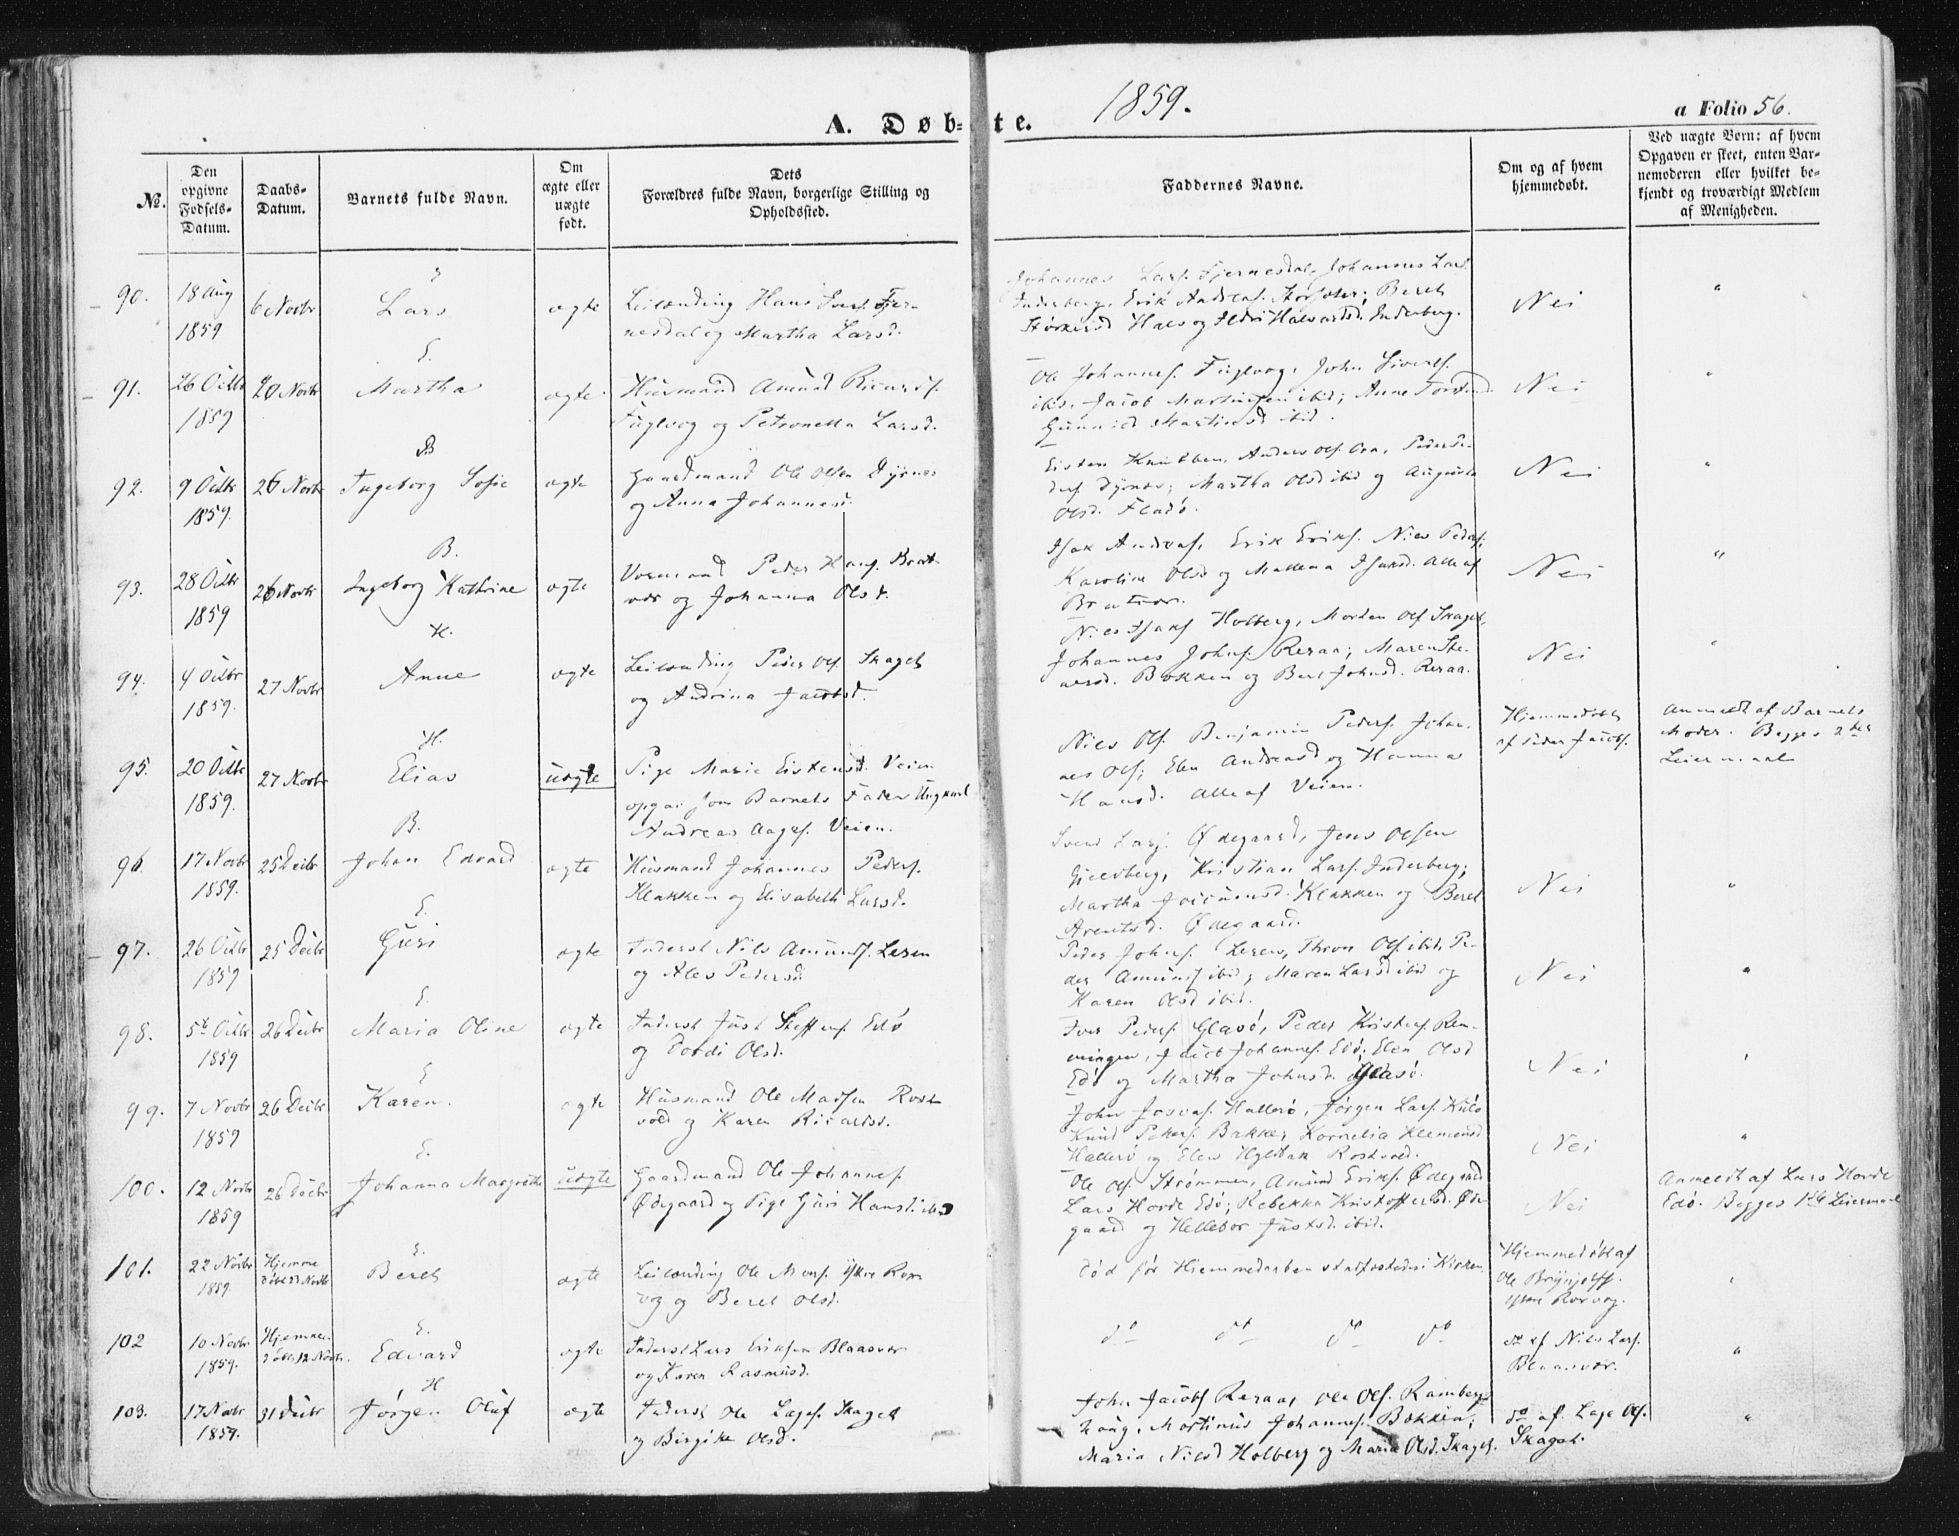 1859.
A. Døbte.
a Folio 56.
№.
Den opgivne Fødsels-Datum.
Daabs-Datum.
Barnets fulde Navn.
Om ægte eller uægte født.
Dets Forældres fulde Navn, borgerlige Stilling og Opholdssted.
Faddernes Navne.
Om og af hvem hjemmedøbt.
Ved uægte Børn: af hvem Opgaven er skeet, enten Barnemoderen eller hvilket bekjendt og troværdigt Medlem af Menigheden.
90. 18 Aug 1859 6 Novbr E Lars ægte
Leilænding Hans Ivers. Fjer-
nesdal og Martha Larsd.
Johannes Lars. Fjernesdal, Johannes Lars.
Inderberg, Erik Beret
Størkersd Hals og Ildri Halvardsd. Inderberg.
Nei "
91. 26 Octbr 1859 20 Novbr E. Martha ægte
Husmand Amund Ricards.
Fuglvog og Petronella Larsd.
Ole Johannes. Fuglvog, John Siverts.
ibid, Jacob Martinsen ibid; Anne
Gunnild Martinsd ibid.
Nei "
92. 9 Octbr 1859. 26 Novbr B Ingeborg Sofie ægte
Gaardmand Ole Olsen Dyrnes
og Anna Johannesd.
Eisten Knudsen, Anders Ols. Peder Pe-
ders Dyrnes; Martha Olsd ibid og Augusta
Olsd. Fladø.
Nei "
93. 28 Octbr 1859 26 Novbr B. Ingeborg Kathrine ægte
Peder Hans. Brat-
vær og Johanna Olsd.
Isak Andreas. Erik Eriks. Niels Peders.
Karoline Olsd og Mallena Isaksd. Alle af
Bratvær.
Nei "
94. 4 Octbr 1859. 27 Novbr H. Anne ægte
Leilænding Peder Ols. Skaget
og Andrina Jacobsd.
Niels Isaks Holberg, Morten Ols Skaget,
Johannes Johns. Reraa; Maren
Bakken og Beret Johnsd. Reraa.
Nei "
95. 20 Octbr 1859. 27 Novbr H. Elias uægte
Pige Marie Eistensd. Veien
opgav som Barnets Fader Ungkarl
Andreas Aages. Veien.
Niels Ols. Benjamin Peders. Johan-
nes Ols; Elen Andreasd og Hanna
Hansd. Alle af Veien.
Hjemmedøbt
af Peder Jacobs.
Anmeldt af Barnets
Moder. Begges 2det
Leiermaal
96. 17 Novbr 1859. 25 Decbr B. Johan Edvard ægte
Husmand Johannes Peders.
Klakken og Elisabeth Larsd.
Svend Lars. Ødegaard, Jens Olsen
Kristian Lars. Inderberg;
Martha Klakken og Beret
Arentsd. Ødegaard.
Nei "
97. 26 Octbr 1859 25 Decbr E. Guri ægte
Inderst Nils Amunds. Leren
og Ales Pedersd.
Peder Johns. Leren, Thron Ols. ibid, Pe-
der Amunds ibid; Maren Larsd ibid og
Karen Olsd ibid.
Nei "
98. 5te Octbr 1859 26 Decbr E. Maria Oline ægte
Inderst Just Steffens. Edø
og Olsd.
Iver Peders. Glasø, Peder Kristens. Ren-
ningen, Jacob Johannes. Edø; Elen Olsd
Edø og Martha Johnsd. Glasø.
Nei
99. 7 Novbr 1859 26 Decbr E Karen. ægte
Husmand Ole Madsen Rost-
vold og Karen Ricardsd.
John Josvas. Hallerø, Jørgen Lars.
Knud Peters. Bakken, Kornelia Klemensd
Hallerø og Elen Rostvold.
Nei "
100. 12 Novbr 1859 26 Decbr E. Johanna Margrethe uægte
Gaardmand Ole Johannes.
Ødegaard og Pige Guri Hansd. ibid
Ole Ols. Strømmen, Amund Eriks. Ødegaard
Lars Horde Edø; Rebekka Kristoffersd. Øde-
gaard og Hellebor Justsd. ibid.
Nei
Anmeldt af Lars Horde
Edø. Begges 1ste Leiermaal
101. 22 Novbr 1859. Hjemme-
døbt Novbr E. Beret ægte
Leilænding Ole Mons. Ytre Ror-
vog og Beret Olsd.
død før Hjemmedaaben stadfæstedes i Kirken.
Hjemmedøbt af
Ole Brynjolfs.
Ytre Rorvog.
102 10 Novbr 1859. Hjemme-
døbt 12 Novbr. E. Edvard ægte
Inderst Lars Eriksen Blaasvær
og Karen Rasmusd.
do do do do
do af Nils Lars.
Blaasvær.
"
103. 17 Novbr 1859. 31 Decbr H Jørgen Oluf ægte
Inderst Ole Lages. Skaget
og Birgithe Olsd.
John Jacobs Reraa, Ole Ols. Ramberg-
haug, Martinus Johannes. Bakken;
Maria Nilsd Holberg og Maria Olsd. Skaget.
do af. Lage Ols.
Skaget.
"